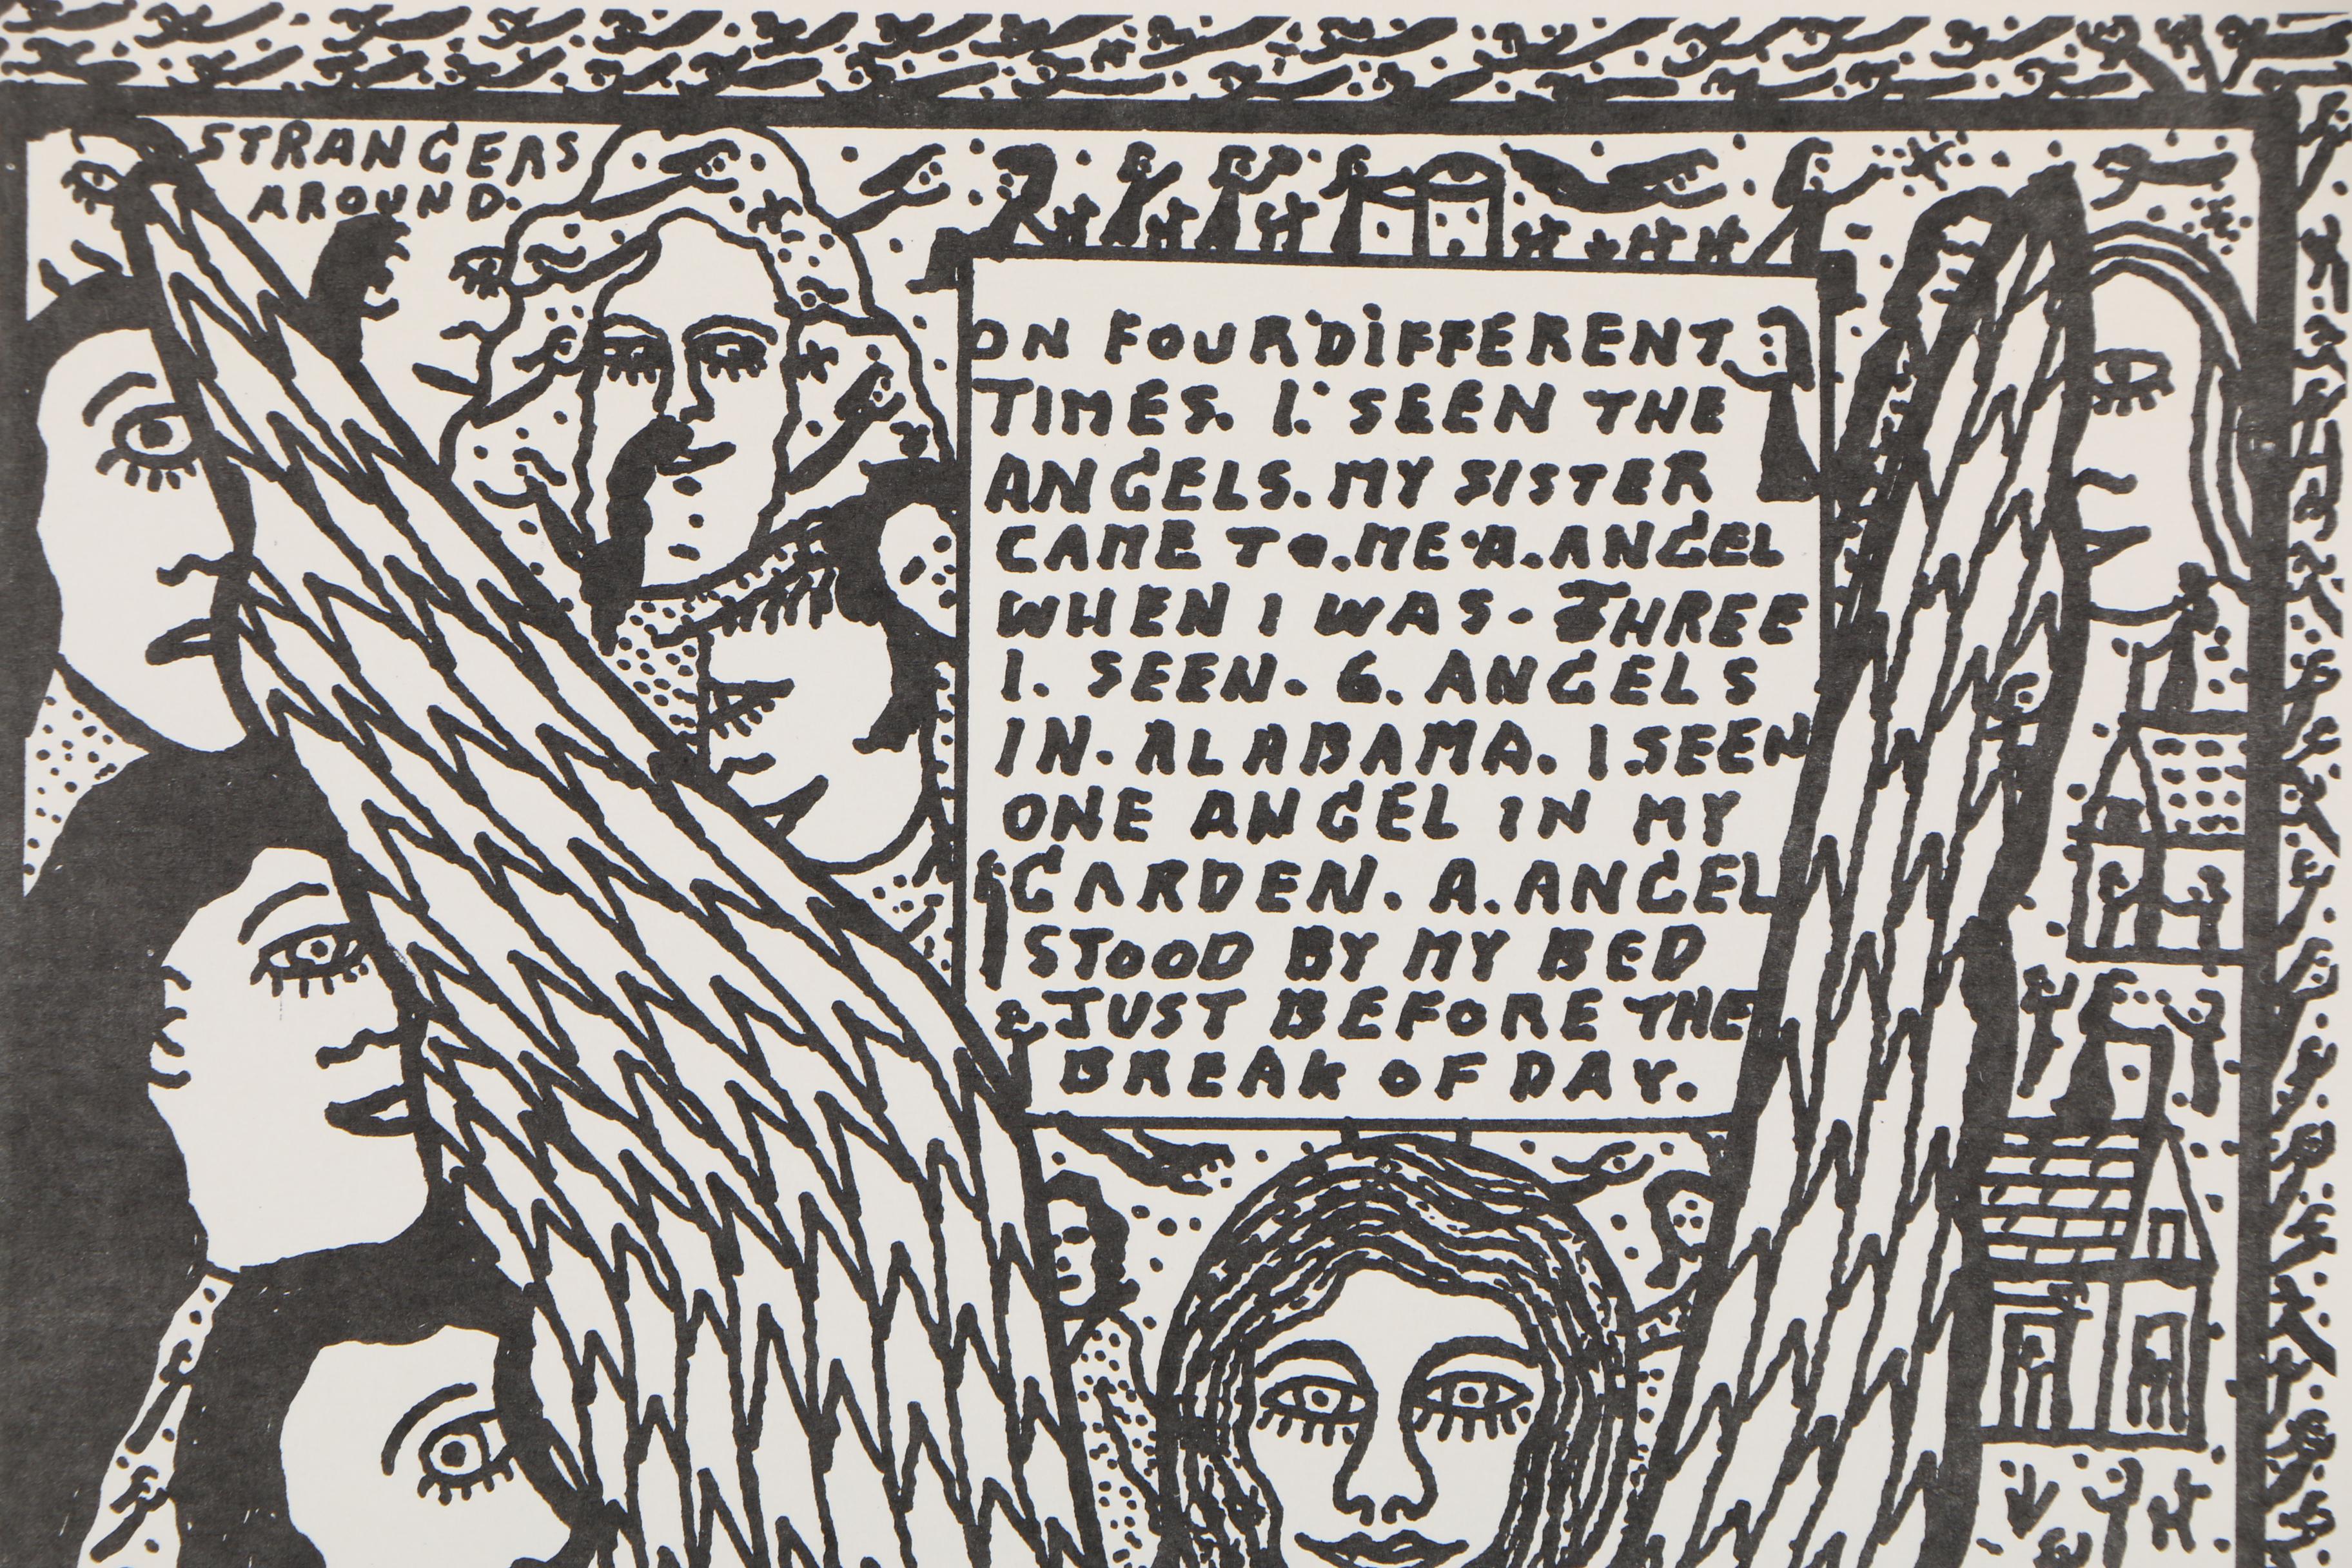 STRANGERS
AROUND.
ON FOUR DIFFERENT
TIMES. I. SEEN THE
ANGELS. MY SISTER
CAME TO. ME A. ANGEL
WHEN I WAS - THREE
I. SEEN. 6. ANGELS
IN. ALABAMA. I SEEN
ONE ANGEL IN MY
GARDEN. A. ANGEL
STOOD BY MY BED
JUST BEFORE THE
BREAK OF DAY.